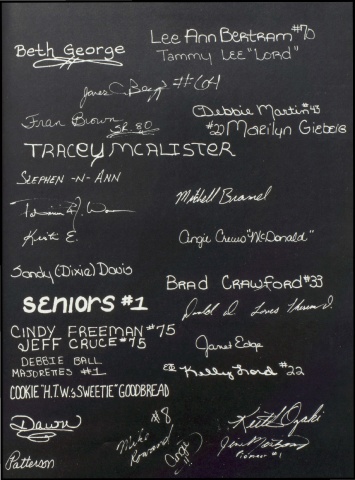 Beth George
Lee Ann Bertram #70
Tammy Lee "Lord"
James C #64
Fran Brown
SR. 80
Debbie Martin #43
#20 Marilyn Giebeig
TRACEY MCALISTER
STEPHEN -N- ANN
Mitchell Braniel
Kristi E.
Angie Crews "McDonald"
Sandy (Dixie) Davis
BRAD CRAWFORD #33
SENIORS #1
Donald D. Loves Theresa D.
CINDY FREEMAN #75
JEFF CRUCE #75
Janet Edge
DEBBIE BALL
MAJORETTES #1
Kelly Lord #22
COOKIE "H.T.W.'s SWEETIE" GOODBREAD
Dawn
#8
Mike
Howard
Angie
Keith Ozaki
Jim
Pioneer #1
Patterson